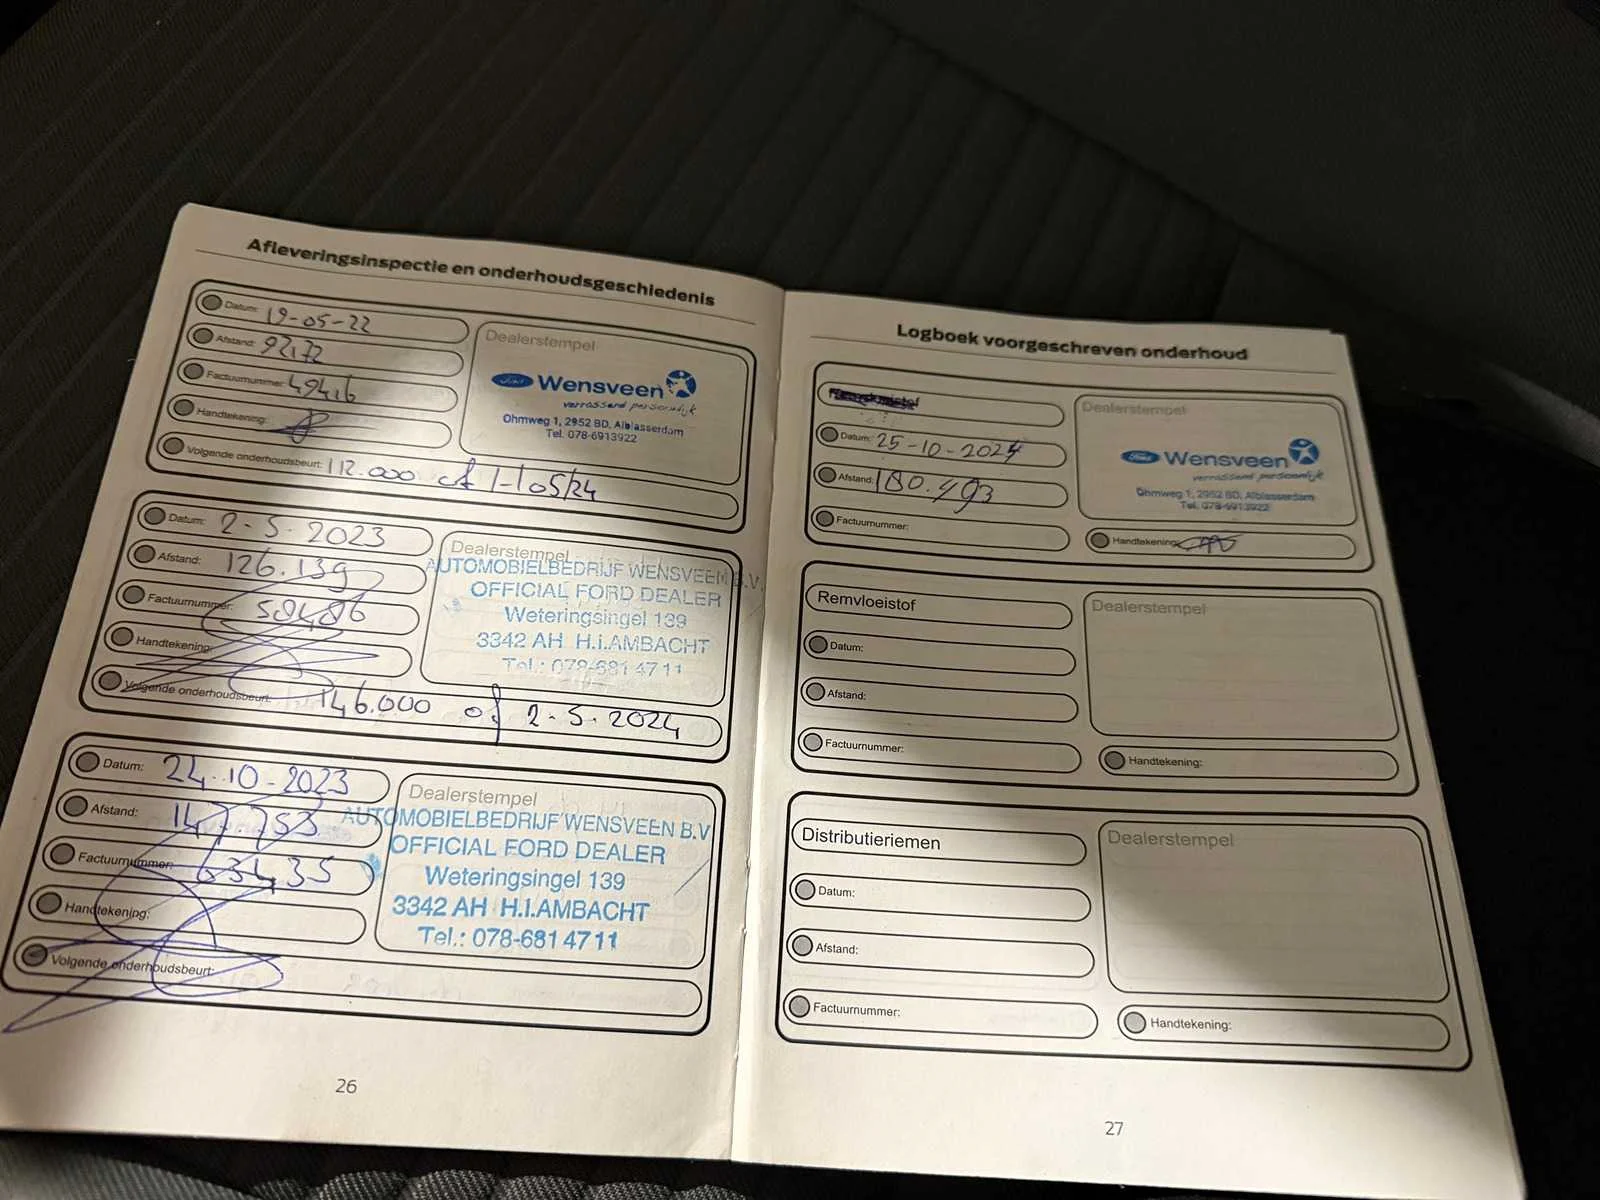 Afleveringsinspectie en onderhoudsgeschiedenis
Datum: 19-05-22
Afstand: 92172
Factuurnummer:
Handtekening:
Volgende onderhoudsbeurt: 112.000 of 05/24
Dealerstempel
Ford Wensveen
verrassend persoonlijk
Ohmweg 1, 2952 BD, Alblasserdam
Tel. 078-6913922
Datum: 2-5-2023
Afstand: 126.139
Factuurnummer: 59486
Handtekening:
Volgende onderhoudsbeurt: 146.000 of 2-5-2024
Dealerstempel
AUTOMOBIELBEDRIJF WENSVEEN B.V.
OFFICIAL FORD DEALER
Weteringsingel 139
3342 AH H.I.AMBACHT
Tel.: 078-681 47 11
Datum: 24-10-2023
Afstand: 147.753
Factuurnummer: 63435
Handtekening:
Volgende onderhoudsbeurt:
Dealerstempel
AUTOMOBIELBEDRIJF WENSVEEN B.V
OFFICIAL FORD DEALER
Weteringsingel 139
3342 AH H.I.AMBACHT
Tel.: 078-681 47 11
26
Logboek voorgeschreven onderhoud
Datum: 25-10-2024
Afstand: 180.493
Factuurnummer:
Dealerstempel
Ford Wensveen
verrassend persoonlijk
Ohmweg 1, 2952 BD, Alblasserdam
Tel. 078-6913922
Handtekening:
Remvloeistof
Datum:
Afstand:
Factuurnummer:
Dealerstempel
Handtekening:
Distributieriemen
Datum:
Afstand:
Factuurnummer:
Dealerstempel
Handtekening:
27